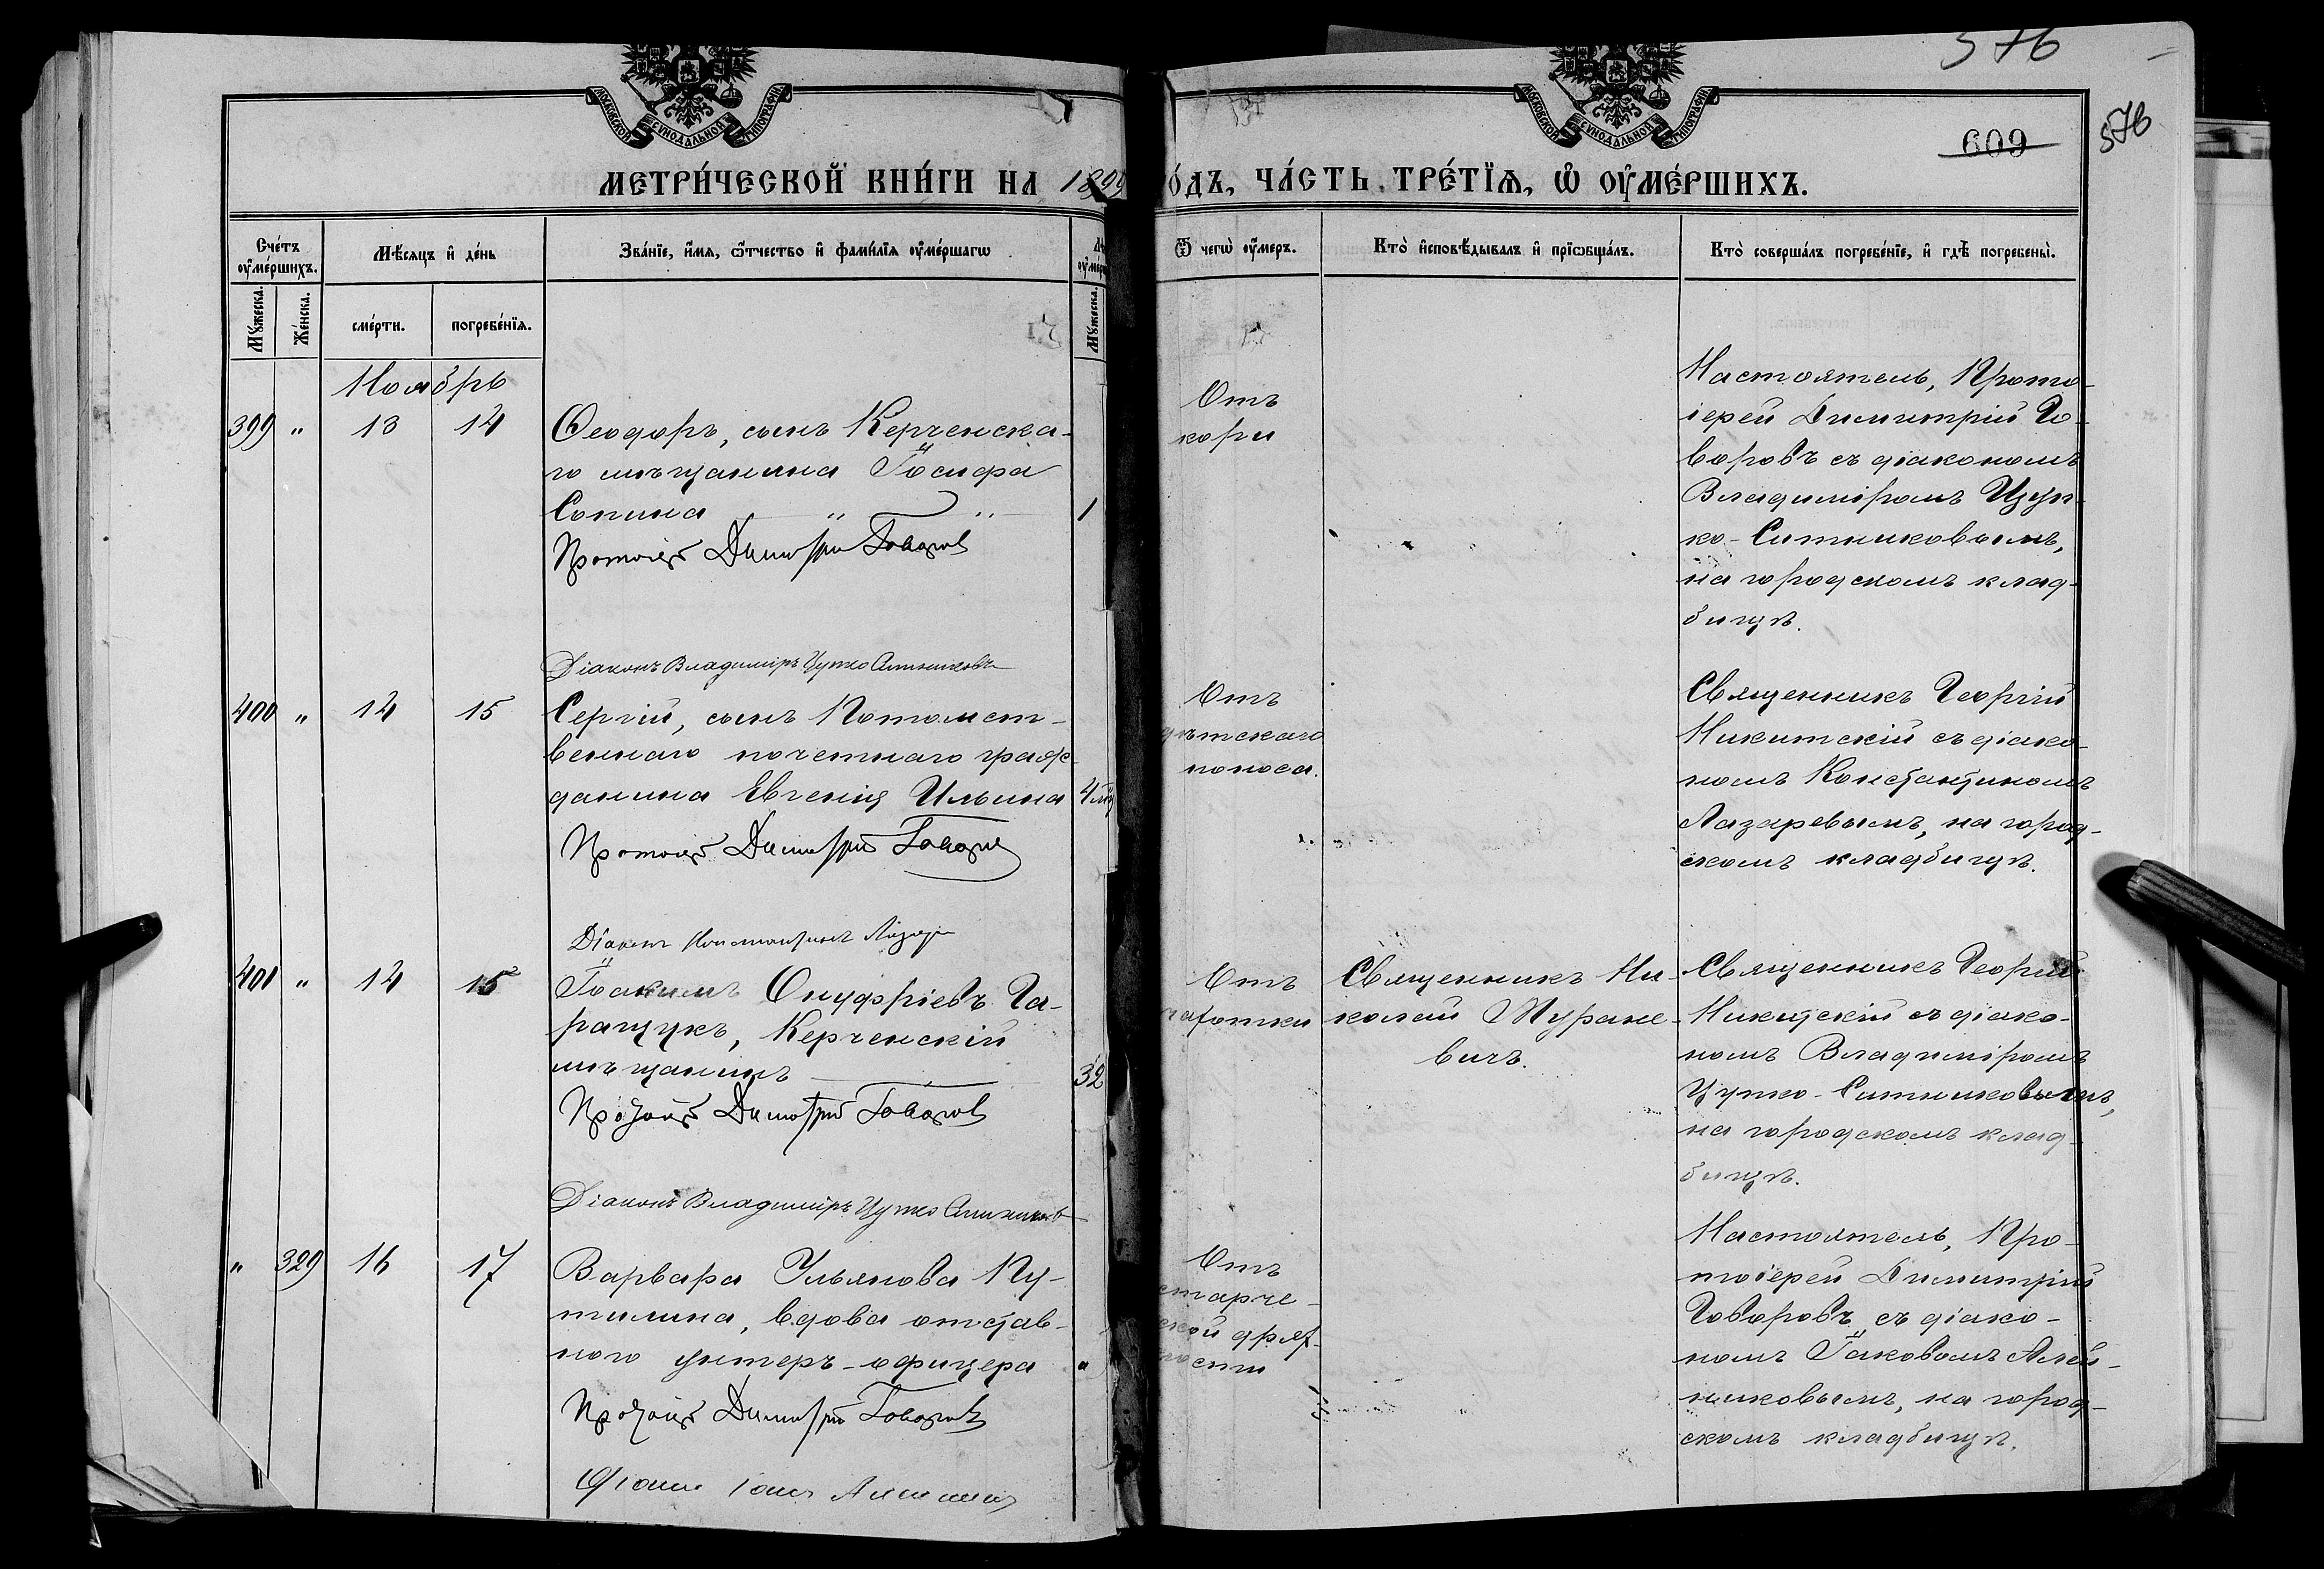 576
МОСКОВСКОЙ СѴНОДАЛЬНОЙ ТИПОГРАФІИ
МОСКОВСКОЙ СѴНОДАЛЬНОЙ ТИПОГРАФІИ
609
576
МЕТРИ́ЧЕСКОЙ КНИ́ГИ НА 1899
О́ДЪ, ЧА́СТЬ ТРЕ́ТЇѦ, Ѡ҆ ОУ҆МЕ́РШИХЪ.
Сче́тъ оу҆ме́ршихъ.
Мѣ́сяцъ и҆ де́нь
Зва́нїе, и҆́мѧ, ѻ҆́тчество и҆ фами́лїѧ оу҆ме́ршагѡ
Мꙋ́жеска.
Же́нска.
сме́рти.
погребе́нїѧ.
Мꙋ́жеска.
Ѿ чегѡ̀ оу҆́меръ.
Кто̀ и҆сповѣ́дывалъ и҆ прїѡбща́лъ.
Кто̀ соверша́лъ погребе́нїе, и҆ гдѣ̀ погребены̀.
Ноябрь
399 " 13 14
Ѳеодоръ, сынъ Керченска-
го мѣщанина Іосифа
Сопина " " 1
Протоіер Димитрій Говоров
Діаконъ Владиміръ Цупко Ситниковъ
Отъ
кори
Настоятель, Прото-
іерей Димитрій Го-
воровъ съ діакономъ
Владиміромъ Цуп-
ко-Ситниковымъ,
на городскомъ клад-
бищѣ.
400 " 14 15
Сергій, сынъ Потомст-
веннаго почетнаго граж-
данина Евгенія Ильина 4
Протоіер Димитрій Говоров
Діаконъ Константинъ Лазарев
Отъ
дѣтскаго
поноса.
Священникъ Георгій
Никитскій съ діако-
номъ Константиномъ
Лазаревымъ, на город-
скомъ кладбищѣ.
401 " 14 15
Іоакимъ Онуфріевъ Га-
ращукъ, Керченскій
мѣщанинъ 32
Протоіер Димитрій Говоров
Діаконъ Владиміръ Цупко Ситников
Отъ
чахотки
Священникъ Ни-
колай Муране-
вичъ.
Священникъ Георгій
Никитскій съ діако-
номъ Владиміромъ
Цупко-Ситниковымъ,
на городскомъ клад-
бищѣ.
" 329 16 17
Варвара Ульянова Пу-
тилина, вдова отстав-
ного унтеръ-офицера "
Протоіер Димитрій Говоровъ
Отъ
старче-
ской дрях-
лости
Настоятель, Про-
тоіерей Димитрій
Говоровъ съ діако-
номъ Іаковомъ Алей-
никовымъ, на город-
скомъ кладбищѣ.